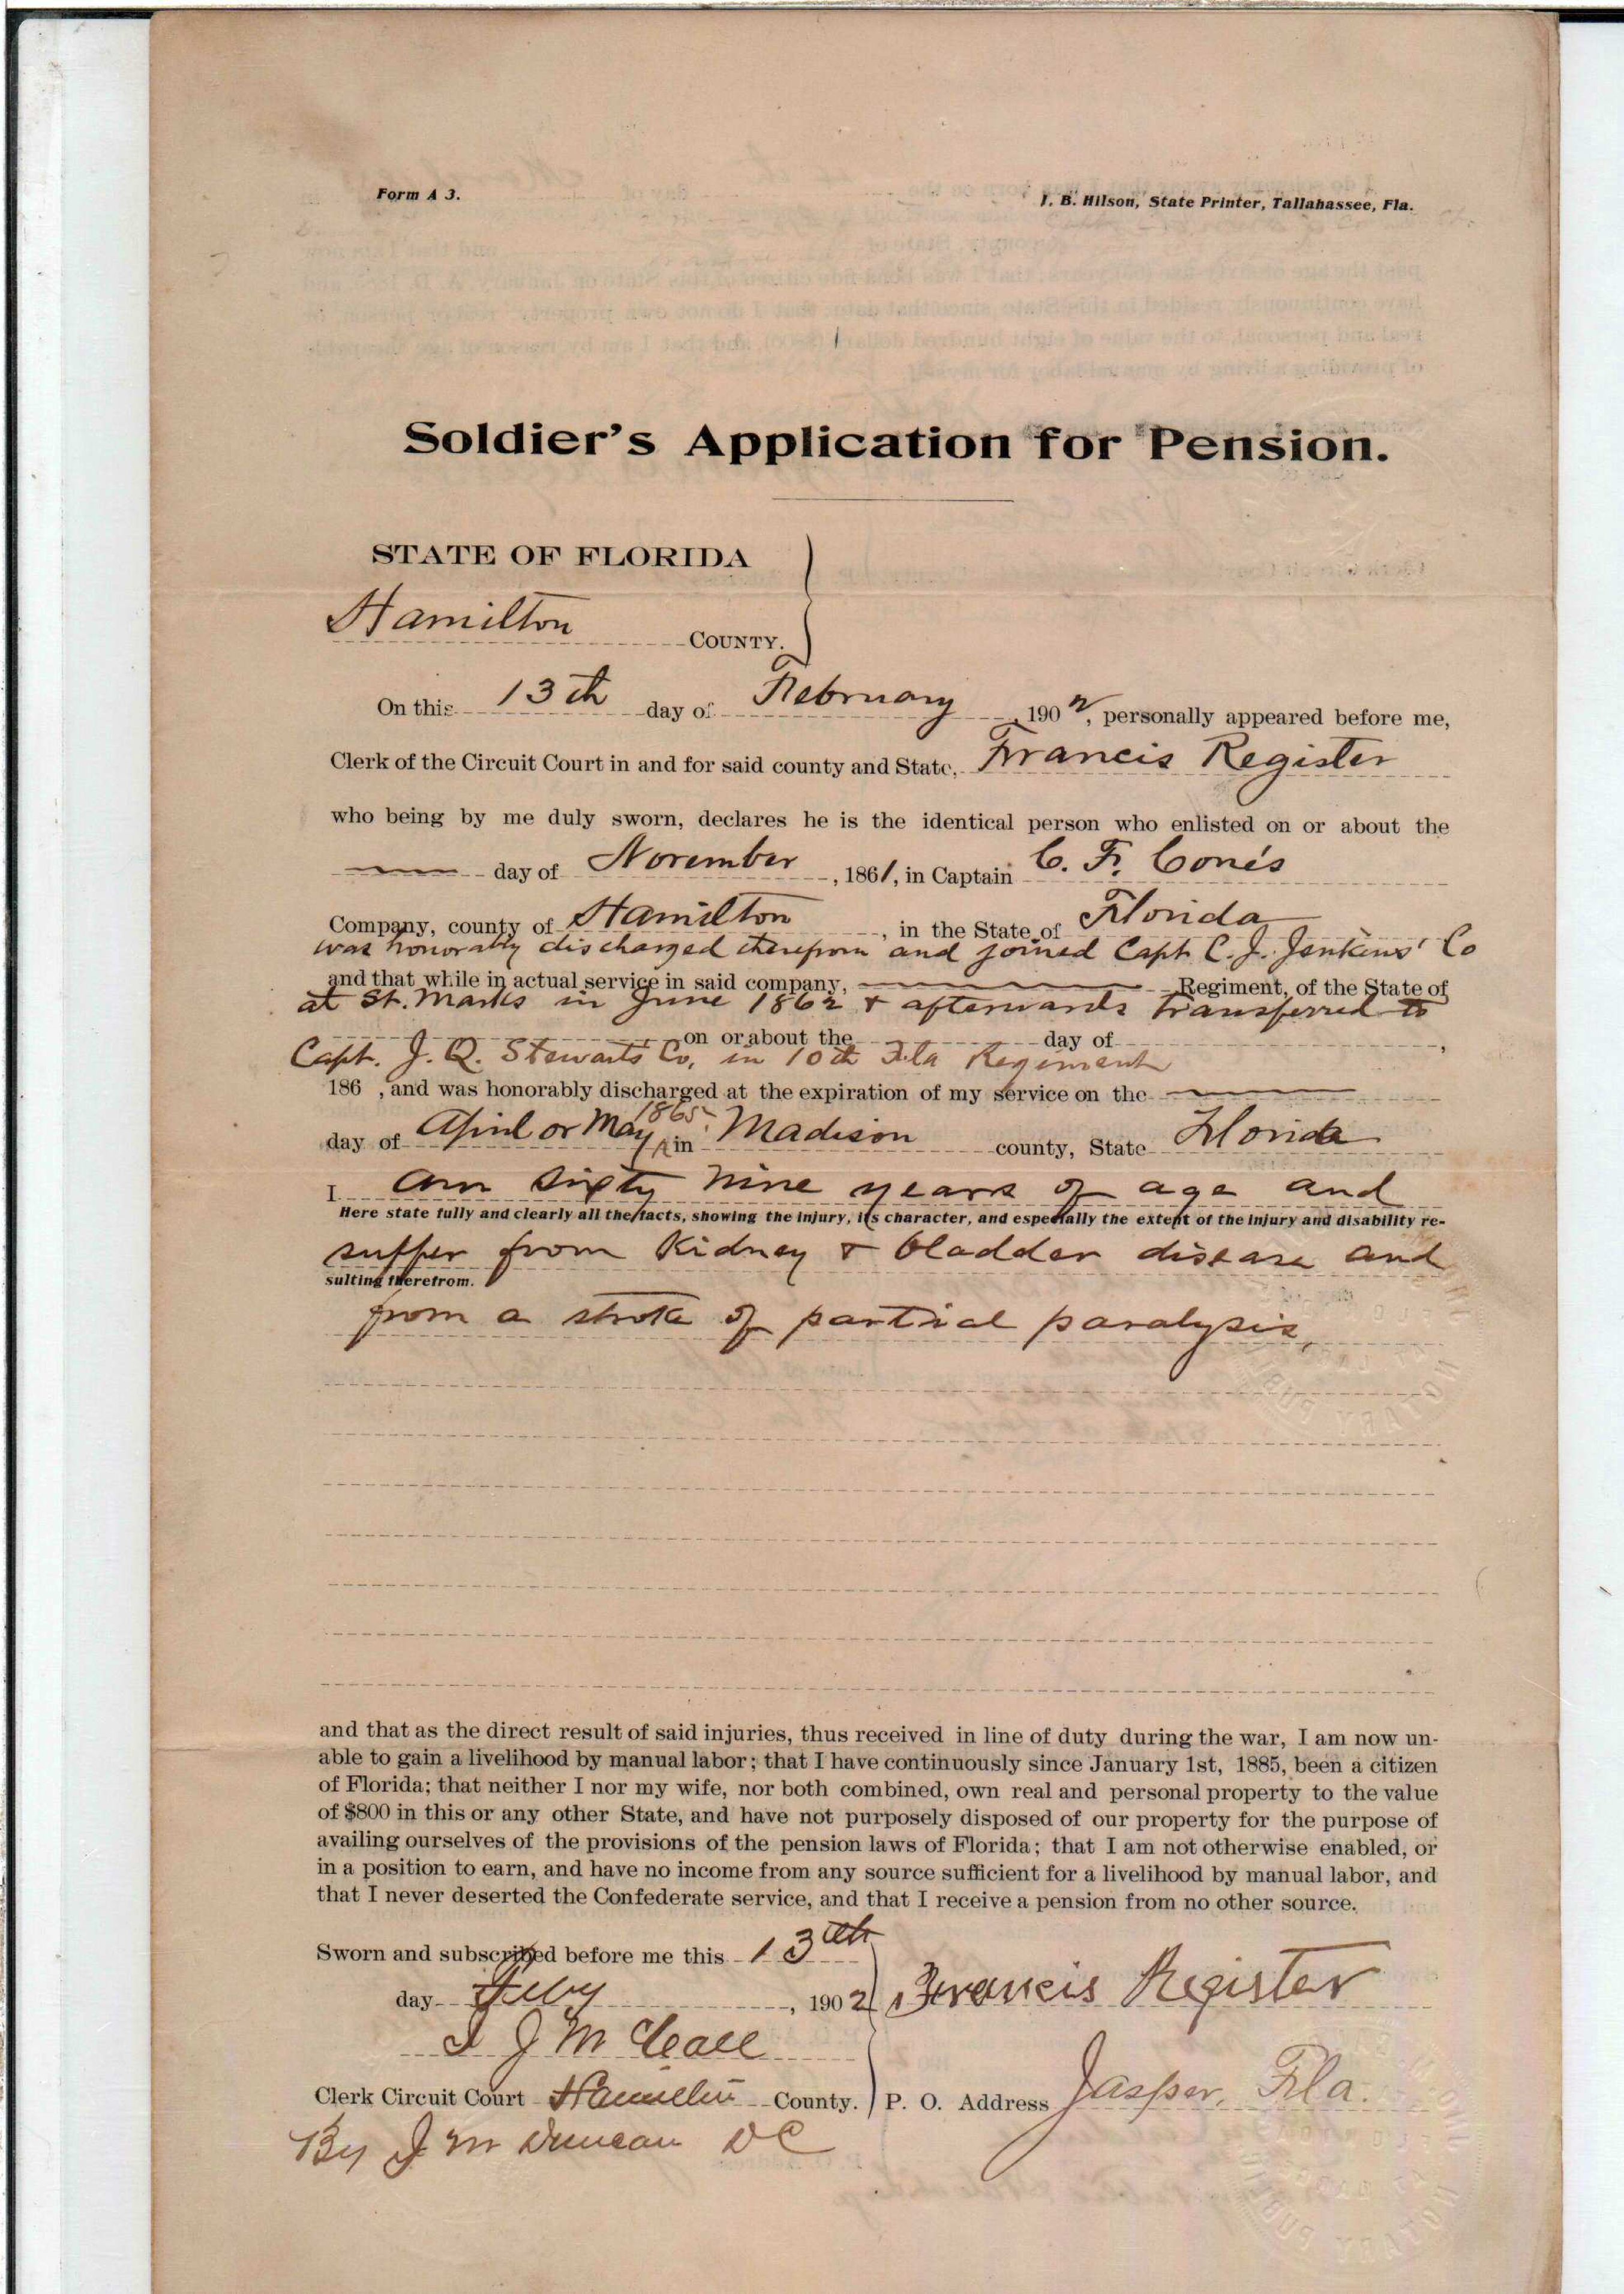 Form A 3.
I. B. Hilson, State Printer, Tallahassee, Fla.
Soldier's Application for Pension.
STATE OF FLORIDA
Hamilton COUNTY.
On this 13th day of February 1902, personally appeared before me,
Clerk of the Circuit Court in and for said county and State, Francis Register
who being by me duly sworn, declares he is the identical person who enlisted on or about the
day of November, 1861, in Captain C. F. Cone's
Company, county of Hamilton, in the State of Florida
was honorably discharged therefrom and joined Capt C. J. Jenkins' Co
and that while in actual service in said company, Regiment, of the State of
at St. Marks in June 1862 & afterwards transferred to
on or about the day of ,
Capt. J. Q. Stewarts Co, in 10th Fla Regiment
186 , and was honorably discharged at the expiration of my service on the
day of April or May 1865 in Madison county, State Florida
I am sixty nine years of age and
Here state fully and clearly all the facts, showing the injury, its character, and especially the extent of the injury and disability re-
suffer from Kidney & bladder disease and
sulting therefrom.
from a stroke of partial paralysis,
and that as the direct result of said injuries, thus received in line of duty during the war, I am now un-
able to gain a livelihood by manual labor; that I have continuously since January 1st, 1885, been a citizen
of Florida; that neither I nor my wife, nor both combined, own real and personal property to the value
of $800 in this or any other State, and have not purposely disposed of our property for the purpose of
availing ourselves of the provisions of the pension laws of Florida; that I am not otherwise enabled, or
in a position to earn, and have no income from any source sufficient for a livelihood by manual labor, and
that I never deserted the Confederate service, and that I receive a pension from no other source.
Sworn and subscribed before me this 13th
day Feby, 1902 Francis Register
J McCall
Clerk Circuit Court Hamilton County. P. O. Address Jasper, Fla.
By J M Duncan DC